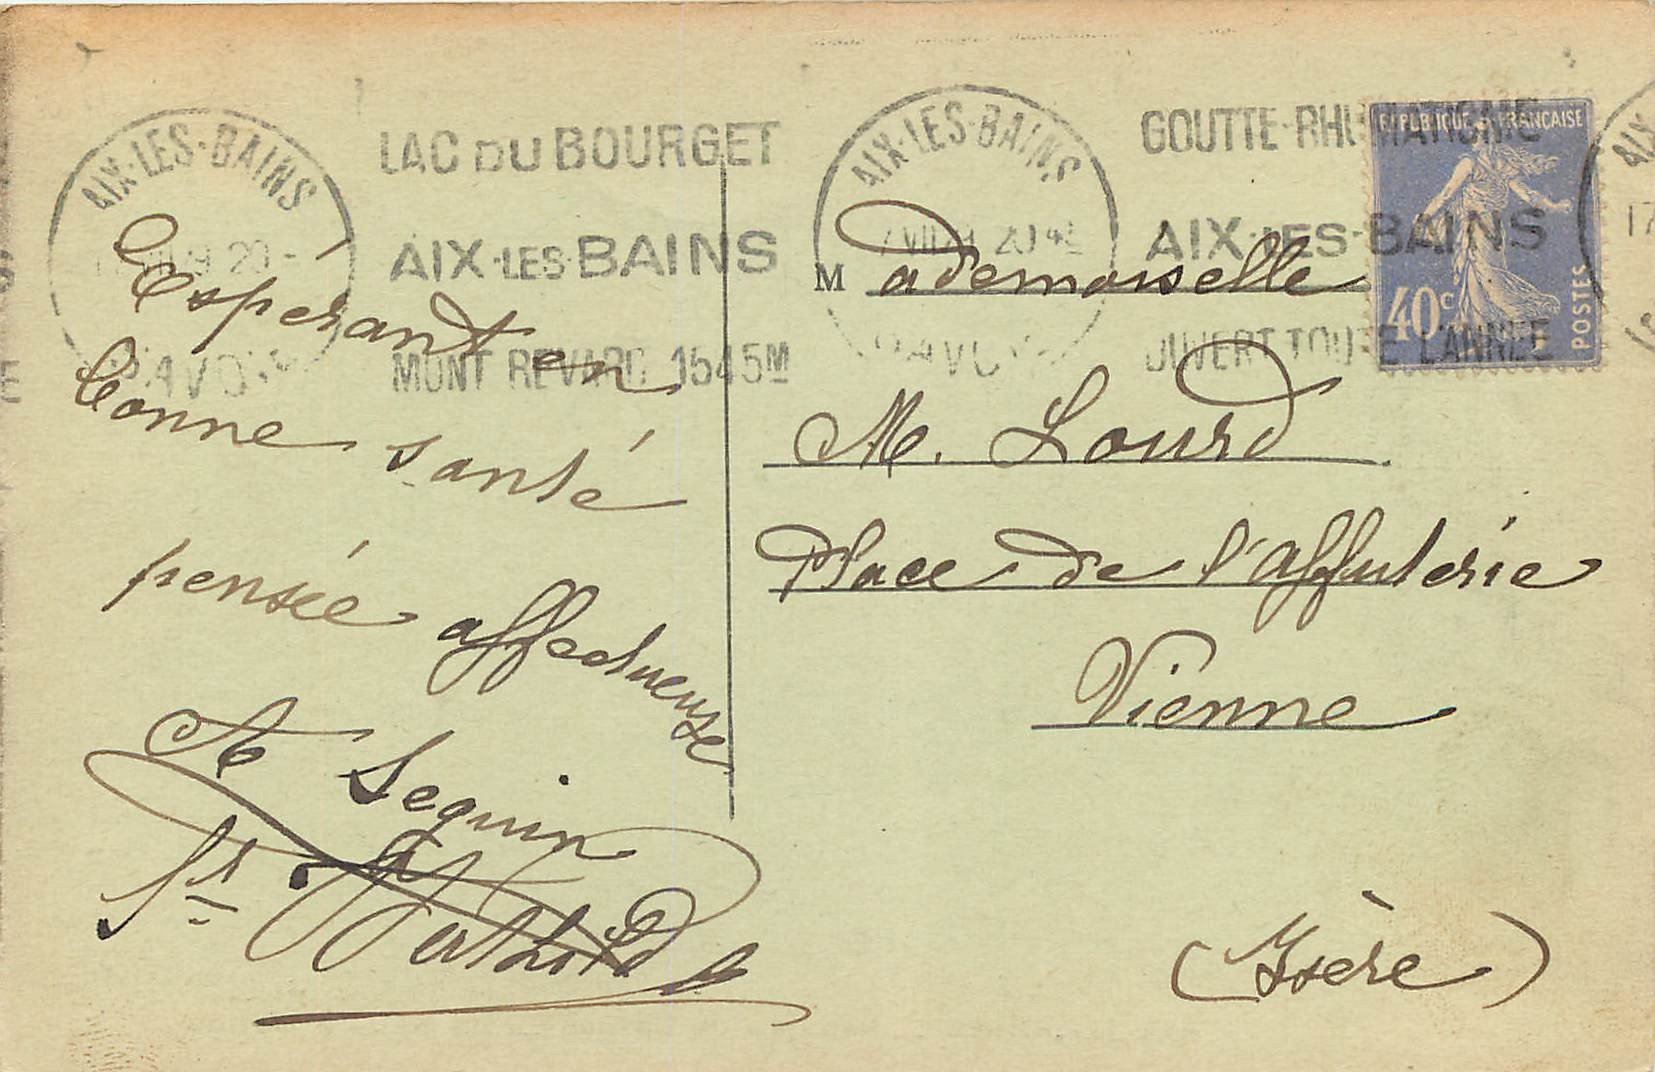 AIX-LES-BAINS
LAC DU BOURGET
AIX-LES-BAINS
MONT REVARD 1545M
AIX-LES-BAINS
GOUTTE-RHUMATISME
AIX-LES-BAINS
OUVERT TOUTE L'ANNÉE
REPUBLIQUE FRANCAISE
40c
POSTES
AIX
17
Espérant en
bonne santé
pensée affectueuse
Seguin
Sr
Mademoiselle
M. Lourd
Place de l'affuterie
Vienne
(Isère)